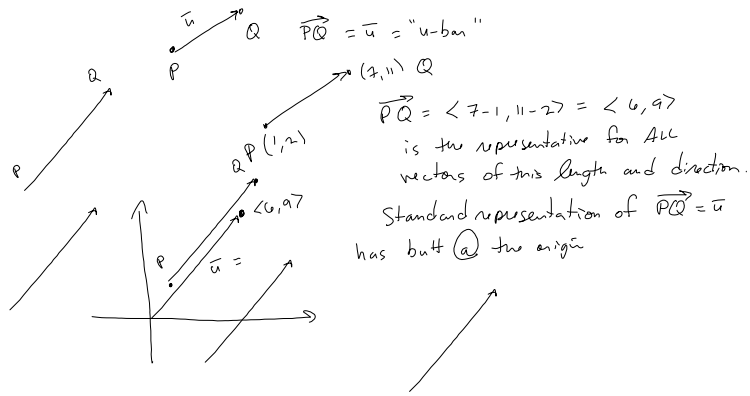 ū
Q
P
PQ = ū = "u-bar"
Q
P
(7,11) Q
P (1,2)
PQ = < 7-1, 11-2> = < 6, 9>
is the representative for ALL
vectors of this length and direction.
Q
<6,9>
P
ū =
Standard representation of PQ = ū
has butt @ the origin